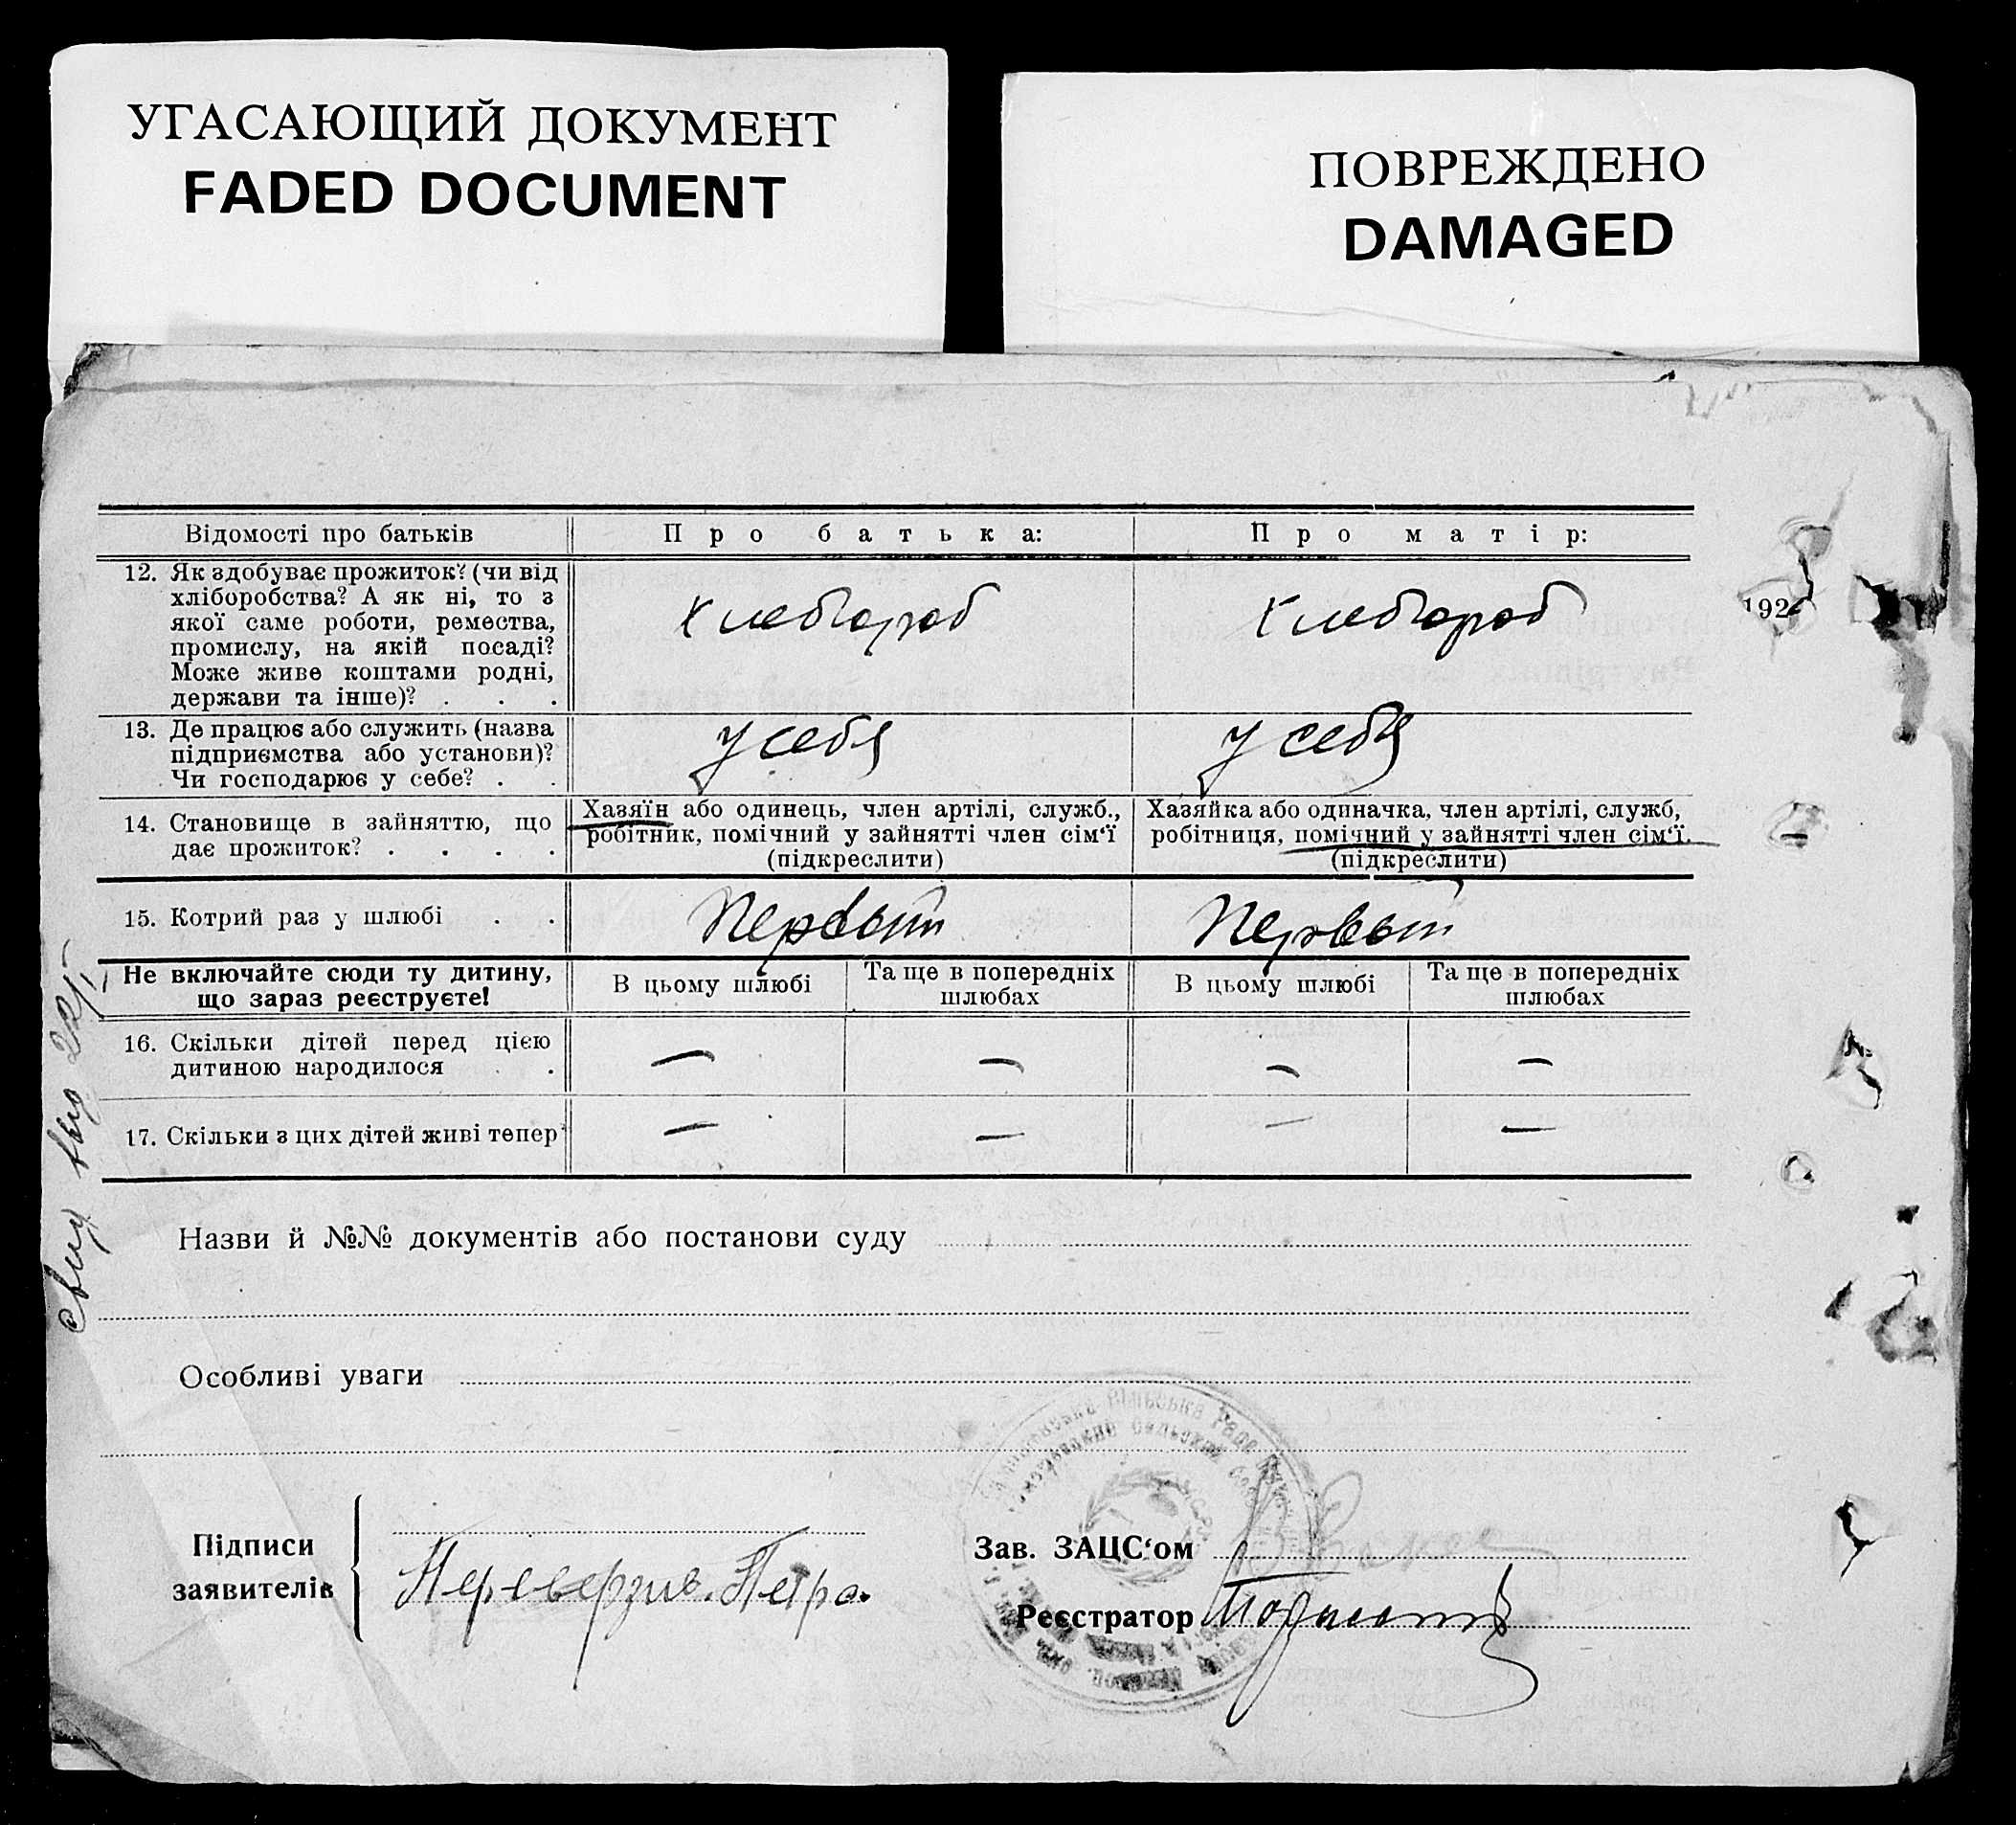 УГАСАЮЩИЙ ДОКУМЕНТ
FADED DOCUMENT
ПОВРЕЖДЕНО
DAMAGED
Відомості про батьків
Про батька:
Про матір:
12. Як здобуває прожиток? (чи від
хліборобства? А як ні, то з
якої саме роботи, ремества,
промислу, на якій посаді?
Може живе коштами родні,
держави та інше)? . . .
Хлебороб
Хлебороб
192
13. Де працює або служить (назва
підприємства або установи)?
Чи господарює у себе? . .
У себя
У себя
14. Становище в зайняттю, що
дає прожиток? . . . .
Хазяїн або одинець, член артілі, служб.,
робітник, помічний у зайнятті член сім‘ї
(підкреслити)
Хазяйка або одиначка, член артілі, служб,
робітниця, помічний у зайнятті член сім‘ї.
(підкреслити)
15. Котрий раз у шлюбі . .
Первый
Первый
Не включайте сюди ту дитину,
що зараз реєструєте!
В цьому шлюбі
Та ще в попередніх
шлюбах
В цьому шлюбі
Та ще в попередніх
шлюбах
16. Скільки дітей перед цією
дитиною народилося .
— — — —
17. Скільки з цих дітей живі тепер
— — — —
Назви й №№ документів або постанови суду
Особливі уваги
Підписи
заявителів
Переверзив. Петро.
Зав. ЗАЦС‘ом
Реєстратор